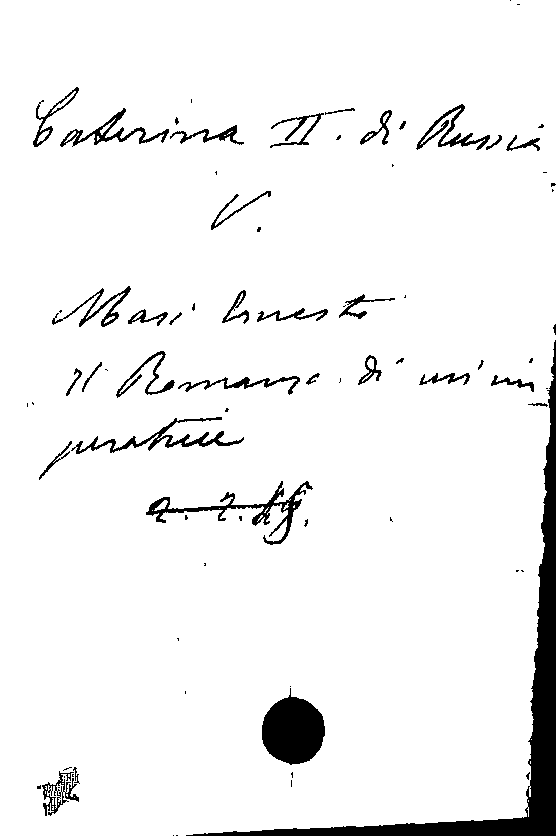 Caterina II. di Russia
V.
Masi Ernesto
Il Romanzo di un'im
peratrice
2. 2.